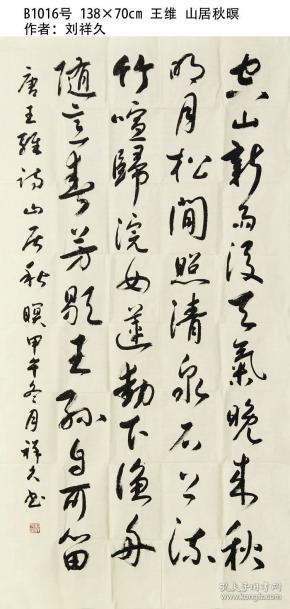 B1016号 138×70cm 王维 山居秋暝
作者：刘祥久
空山新雨后天气晚来秋
明月松间照清泉石上流
竹喧归浣女莲动下渔舟
随意春芳歇王孙自可留
唐王维诗山居秋暝甲午冬月祥久书
孔夫子旧书网